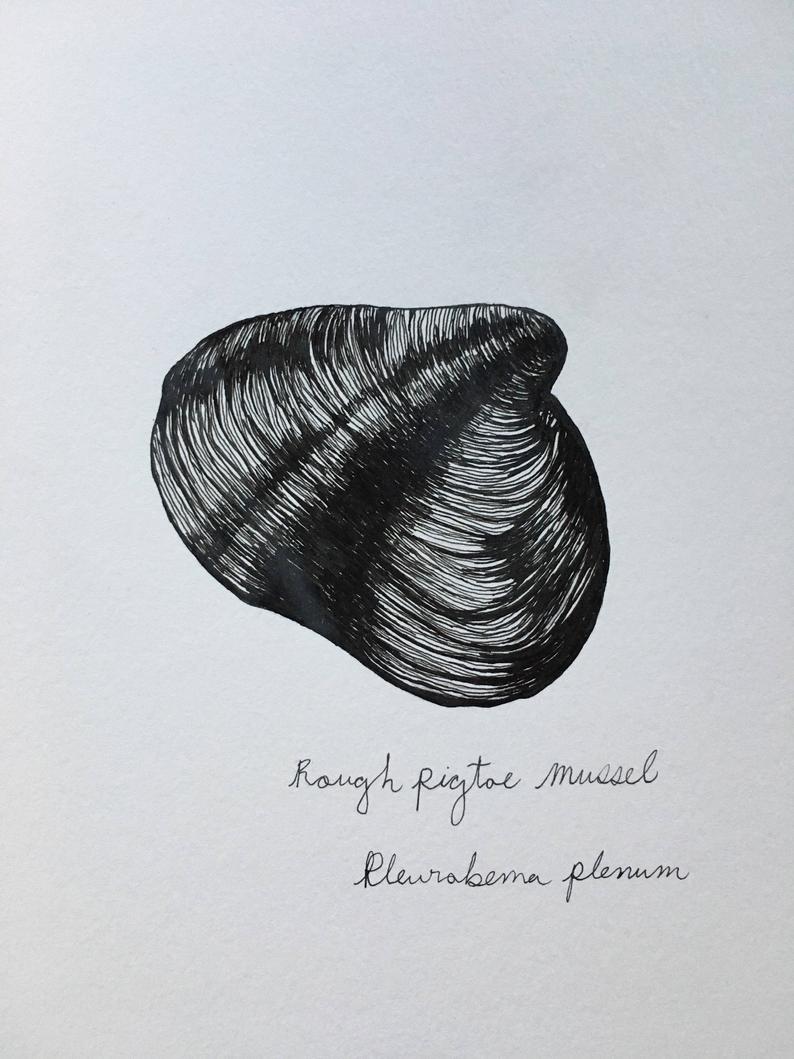 Rough pigtoe mussel
Pleurobema plenum